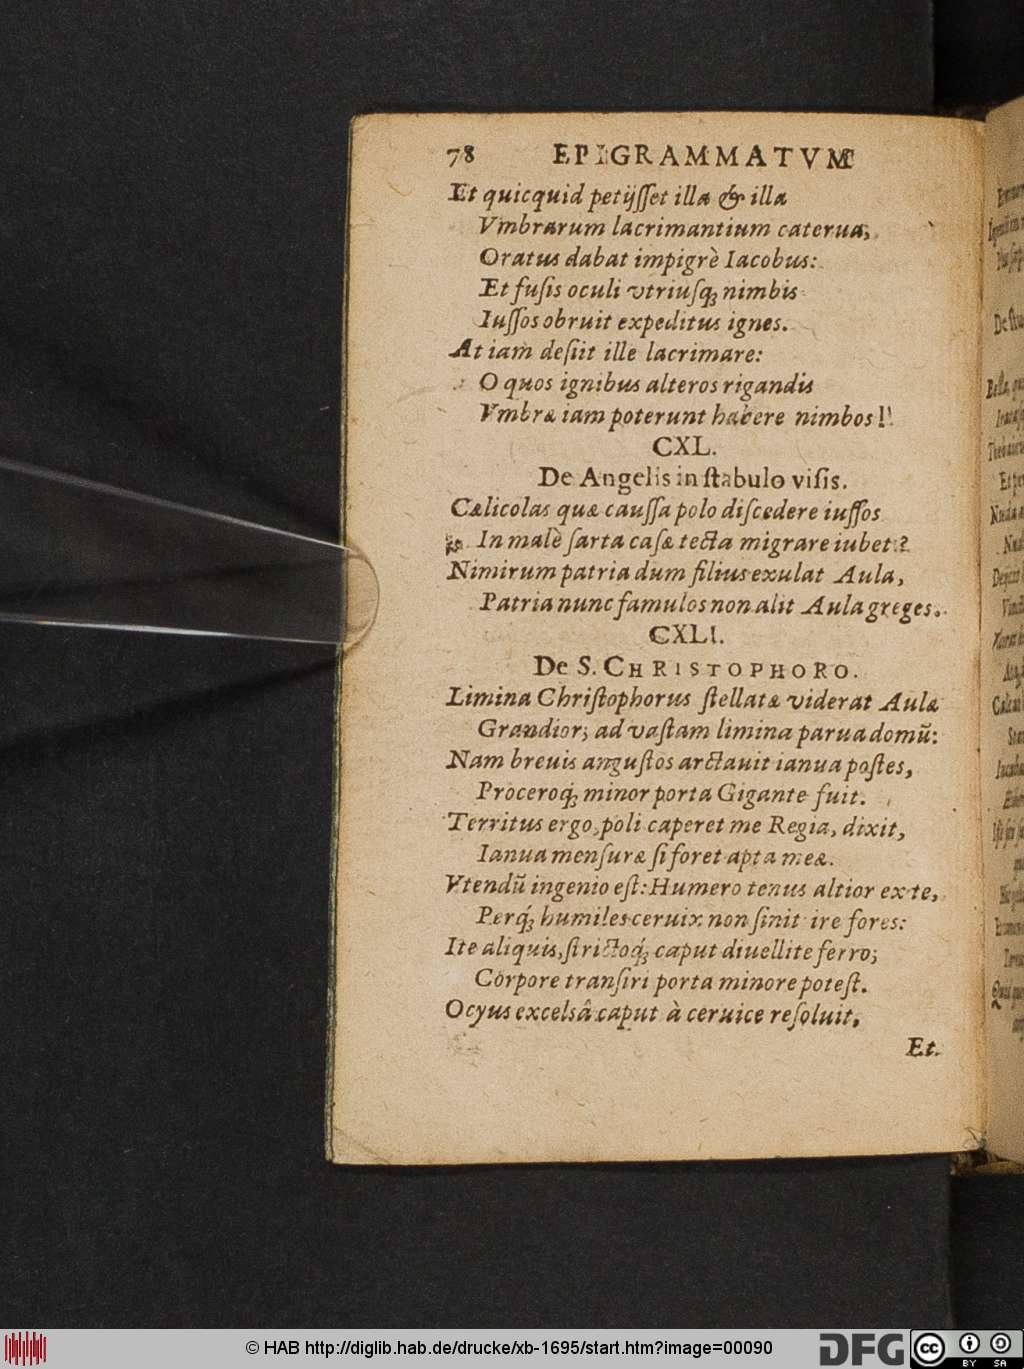 78 EPIGRAMMATVM
Et quicquid petijſſet illa & illa
Vmbrarum lacrimantium caterua,
Oratus dabat impigrè Iacobus:
Et fuſis oculi vtriuſq́; nimbis
Iuſſos obruit expeditus ignes.
At iam deſiit ille lacrimare:
O quos ignibus alteros rigandis
Vmbræ iam poterunt habere nimbos!
CXL.
De Angelis in ſtabulo viſis.
Cælicolas quæ cauſſa polo diſcedere iuſſos
In malè ſarta caſæ tecta migrare iubet?
Nimirum patria dum filius exulat Aula,
Patria nunc famulos non alit Aula greges.
CXLI.
De S. CHRISTOPHORO.
Limina Chriſtophorus ſtellatæ viderat Aulæ
Grandior; ad vaſtam limina parua domũ:
Nam breuis anguſtos arctauit ianua poſtes,
Proceroq́; minor porta Gigante fuit.
Territus ergo, poli caperet me Regia, dixit,
Ianua menſuræ ſi foret apta meæ.
Vtendũ ingenio eſt: Humero tenus altior exte,
Perq́; humiles ceruix non ſinit ire fores:
Ite aliquis, ſtrictoq́; caput diuellite ferro;
Corpore tranſiri porta minore poteſt.
Ocyus excelsâ caput à ceruice reſoluit,
Et.
© HAB http://diglib.hab.de/drucke/xb-1695/start.htm?image=00090
DFG
cc BY SA